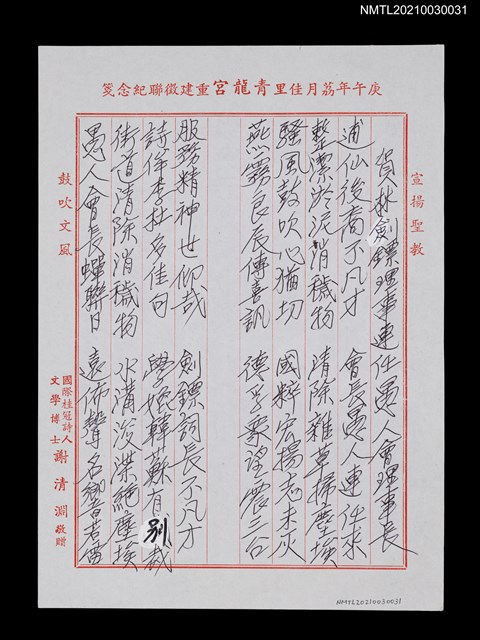 NMTL20210030031
庚午年荔月佳里青龍宮重建徵聯紀念箋
宣揚聖教
賀林劍鏢理事連任愚人會理事長
逋仙後裔不凡才 會長愚人連任來
整漂於泥消穢物 清除雜草掃塵埃
騷風鼓吹心猶切 國粹宏揚志未灰
燕霧良辰傳喜訊 德孚眾望震三台
服務精神世仰哉 劍鏢詞長不凡才
詩侔李杜多佳句 學媲韓蘇有別裁
街道清除消穢物 水溝浚渫絕塵埃
愚人會長蟬聯日 遠佈聲名響若雷
鼓吹文風
國際桂冠詩人
文學博士
謝清淵敬贈
NMTL20210030031